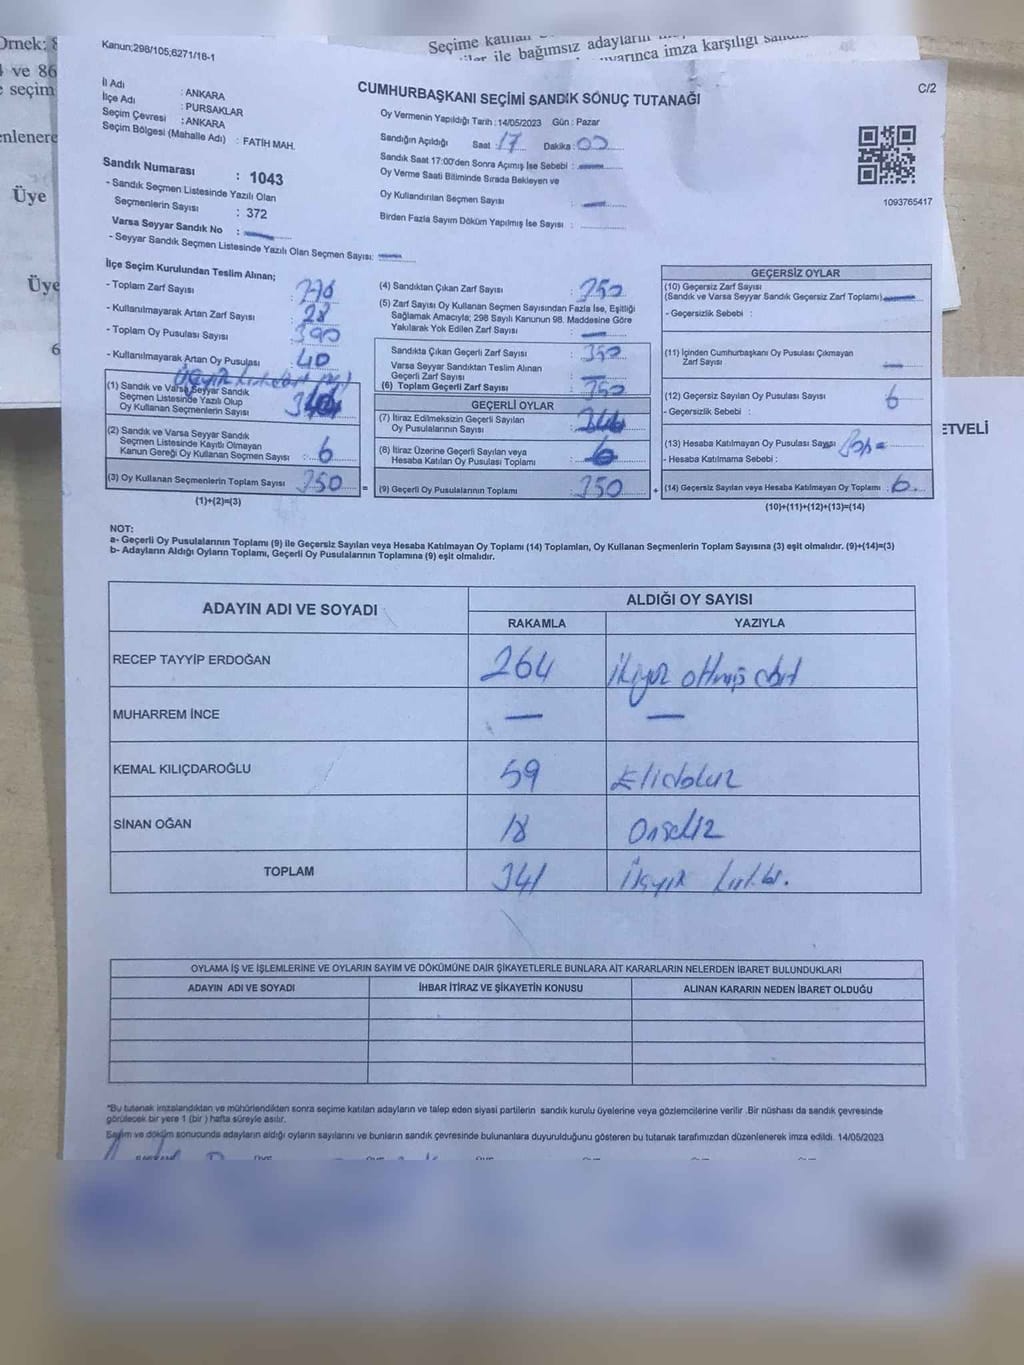 Örnek:
ve 86
seçim
Üye
Üye
6
Seçime katılan
ile bağımsız adayların
uyarınca imza karşılığı
ETVELİ
Kanun;298/105;6271/18-1
C/2
CUMHURBAŞKANI SEÇİMİ SANDIK SONUÇ TUTANAĞI
İl Adı : ANKARA
İlçe Adı : PURSAKLAR
Seçim Çevresi : ANKARA
Seçim Bölgesi (Mahalle Adı) : FATİH MAH.
Sandık Numarası : 1043
- Sandık Seçmen Listesinde Yazılı Olan
Seçmenlerin Sayısı : 372
Varsa Seyyar Sandık No : —
- Seyyar Sandık Seçmen Listesinde Yazılı Olan Seçmen Sayısı: —
Oy Vermenin Yapıldığı Tarih : 14/05/2023 Gün : Pazar
Sandığın Açıldığı Saat : 17 Dakika : 00
Sandık Saat 17:00'den Sonra Açımış İse Sebebi : —
Oy Verme Saati Bitiminde Sırada Bekleyen ve
Oy Kullandırılan Seçmen Sayısı : —
Birden Fazla Sayım Döküm Yapılmış İse Sayısı :
1093765417
İlçe Seçim Kurulundan Teslim Alınan;
- Toplam Zarf Sayısı :
- Kullanılmayarak Artan Zarf Sayısı : 28
- Toplam Oy Pusulası Sayısı : 390
- Kullanılmayarak Artan Oy Pusulası : 40
(1) Sandık ve Varsa Seyyar Sandık
Seçmen Listesinde Yazılı Olup
Oy Kullanan Seçmenlerin Sayısı
(2) Sandık ve Varsa Seyyar Sandık
Seçmen Listesinde Kayıtlı Olmayan
Kanun Gereği Oy Kullanan Seçmen Sayısı : 6
(3) Oy Kullanan Seçmenlerin Toplam Sayısı 350 =
(1)+(2)=(3)
(4) Sandıktan Çıkan Zarf Sayısı : 350
(5) Zarf Sayısı Oy Kullanan Seçmen Sayısından Fazla İse, Eşitliği
Sağlamak Amacıyla; 298 Sayılı Kanunun 98. Maddesine Göre
Yakılarak Yok Edilen Zarf Sayısı : —
Sandıkta Çıkan Geçerli Zarf Sayısı : 350
Varsa Seyyar Sandıktan Teslim Alınan
Geçerli Zarf Sayısı : —
(6) Toplam Geçerli Zarf Sayısı : 350
GEÇERLİ OYLAR
(7) İtiraz Edilmeksizin Geçerli Sayılan
Oy Pusulalarının Sayısı :
(8) İtiraz Üzerine Geçerli Sayılan veya
Hesaba Katılan Oy Pusulası Toplamı :
(9) Geçerli Oy Pusulalarının Toplamı : 350 +
GEÇERSİZ OYLAR
(10) Geçersiz Zarf Sayısı
(Sandık ve Varsa Seyyar Sandık Geçersiz Zarf Toplamı) —
- Geçersizlik Sebebi :
(11) İçinden Cumhurbaşkanı Oy Pusulası Çıkmayan
Zarf Sayısı : —
(12) Geçersiz Sayılan Oy Pusulası Sayısı : 6
- Geçersizlik Sebebi :
(13) Hesaba Katılmayan Oy Pusulası Sayısı
- Hesaba Katılmama Sebebi :
(14) Geçersiz Sayılan veya Hesaba Katılmayan Oy Toplamı : 6
(10)+(11)+(12)+(13)=(14)
NOT:
a- Geçerli Oy Pusulalarının Toplamı (9) ile Geçersiz Sayılan veya Hesaba Katılmayan Oy Toplamı (14) Toplamları, Oy Kullanan Seçmenlerin Toplam Sayısına (3) eşit olmalıdır. (9)+(14)=(3)
b- Adayların Aldığı Oyların Toplamı, Geçerli Oy Pusulalarının Toplamına (9) eşit olmalıdır.
ADAYIN ADI VE SOYADI ALDIĞI OY SAYISI
RAKAMLA YAZIYLA
RECEP TAYYİP ERDOĞAN 264 ikiyüz altmış dört
MUHARREM İNCE — —
KEMAL KILIÇDAROĞLU 59 Ellidokuz
SİNAN OĞAN 18 Onsekiz
TOPLAM 341
OYLAMA İŞ VE İŞLEMLERİNE VE OYLARIN SAYIM VE DÖKÜMÜNE DAİR ŞİKAYETLERLE BUNLARA AİT KARARLARIN NELERDEN İBARET BULUNDUKLARI
ADAYIN ADI VE SOYADI İHBAR İTİRAZ VE ŞİKAYETİN KONUSU ALINAN KARARIN NEDEN İBARET OLDUĞU
*Bu tutanak imzalandıktan ve mühürlendikten sonra seçime katılan adayların ve talep eden siyasi partilerin sandık kurulu üyelerine veya gözlemcilerine verilir .Bir nüshası da sandık çevresinde
görülecek bir yere 1 (bir ) hafta süreyle asılır.
Sayım ve döküm sonucunda adayların aldığı oyların sayılarını ve bunların sandık çevresinde bulunanlara duyurulduğunu gösteren bu tutanak tarafımızdan düzenlenerek imza edildi. 14/05/2023